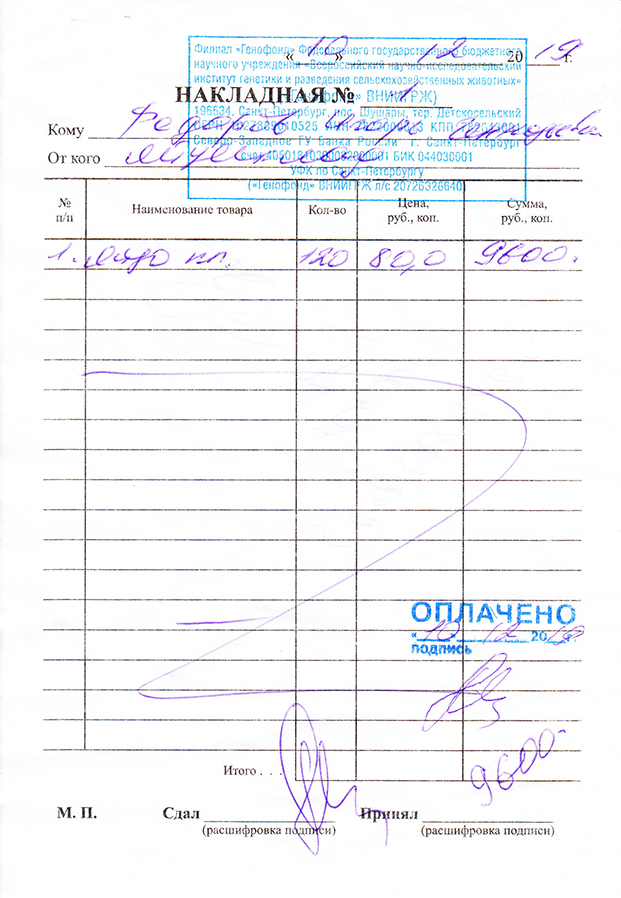 Филиал «Генофонд» Федерального государственного бюджетного
научного учреждения «Всероссийский научно-исследовательский
институт генетики и разведения сельскохозяйственных животных»
«10» 12 2019 г.
НАКЛАДНАЯ №
ВНИИГРЖ)
196634, Санкт-Петербург, пос. Шушары, тер. Детскосельский
Кому
Северо-Западное ГУ Банка России г. Санкт-Петербург
От кого
БИК 044030001
УФК по Санкт-Петербургу
(«Генофонд» ВНИИГРЖ л/с 20726Э26640)
№ п/п Наименование товара Кол-во Цена, руб., коп. Сумма, руб., коп.
1. яйцо пл. 120 80,0 9600.
ОПЛАЧЕНО
«10» 12 2019 г.
подпись
Итого . . . 9600-
М. П. Сдал Принял
(расшифровка подписи) (расшифровка подписи)